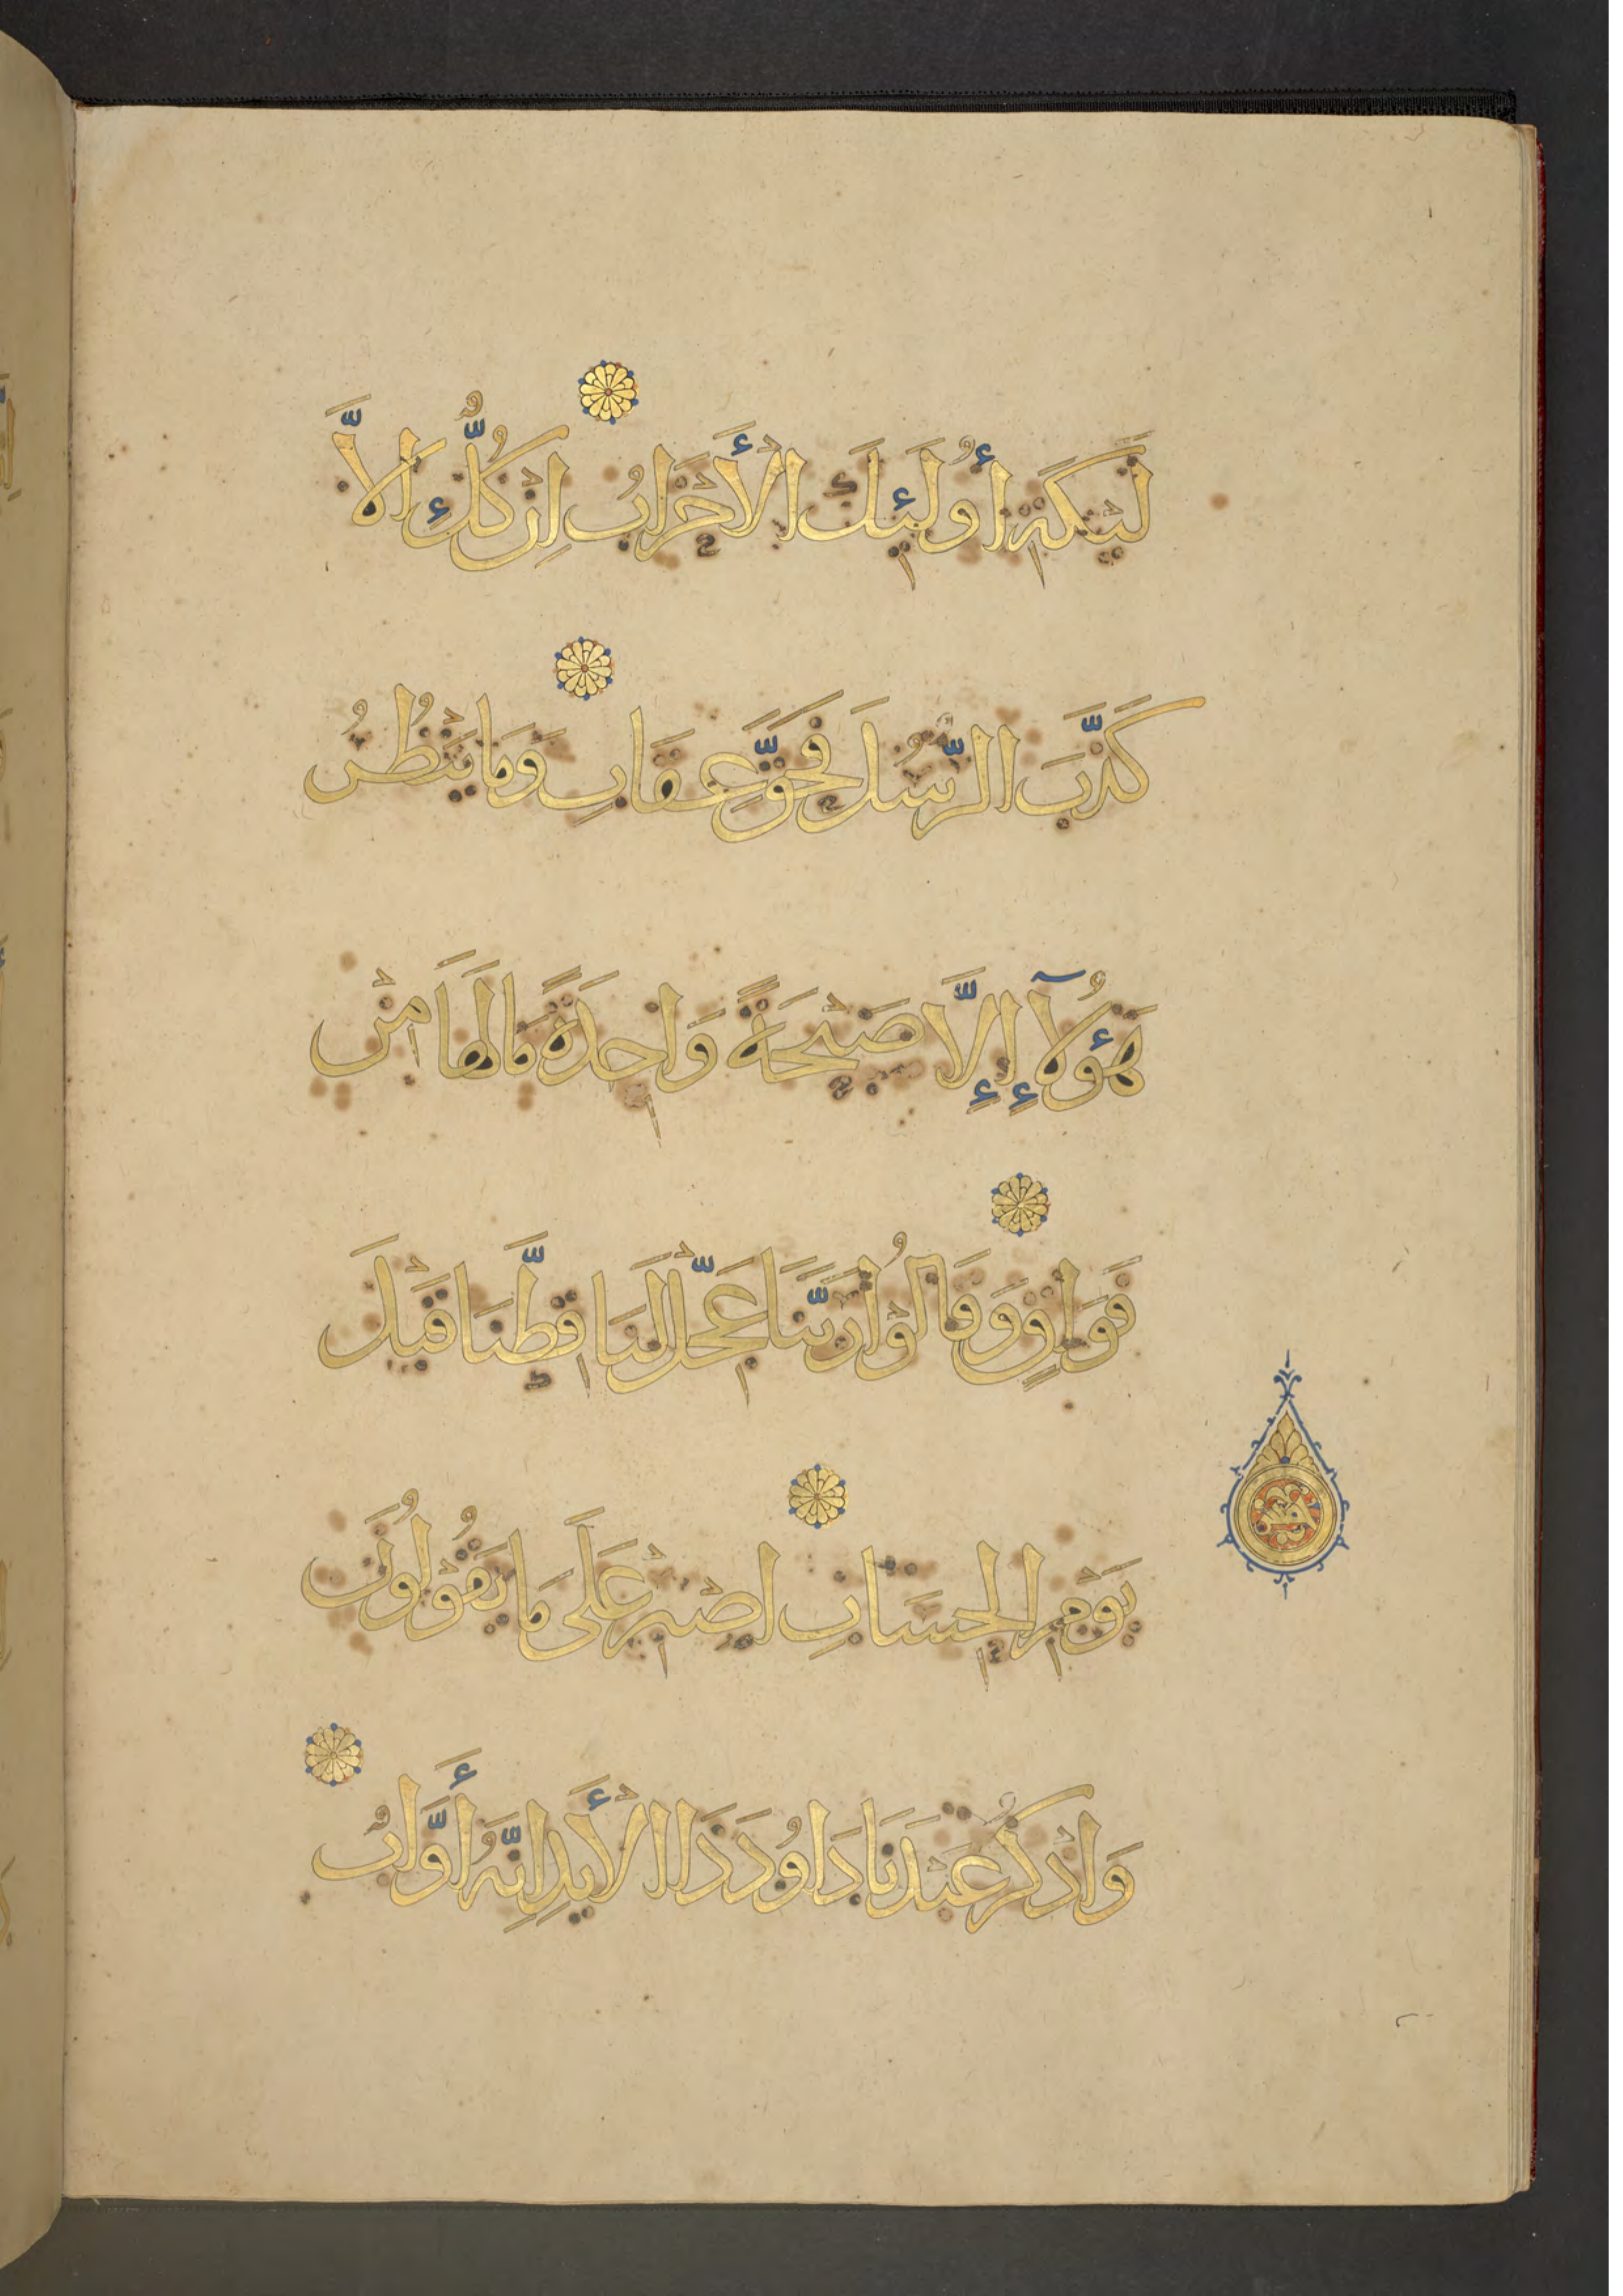 لْـَٔيْكَةِ أُولَئِكَ الْأَحْزَابُ إِنْ كُلٌّ إِلَّا
كَذَّبَ الرُّسُلَ فَحَقَّ عِقَابِ وَمَا يَنْظُرُ
هَؤُلَآءِ إِلَّا صَيْحَةً وَاحِدَةً مَا لَهَا مِنْ
فَوَاقٍ وَقَالُوْا رَبَّنَا عَجِّلْ لَنَا قِطَّنَا قَبْلَ
يَوْمِ الْحِسَابِ اصْبِرْ عَلَى مَا يَقُوْلُوْنَ
وَاذْكُرْ عَبْدَنَا دَاوُدَ ذَا الْأَيْدِ إِنَّهُ أَوَّابٌ